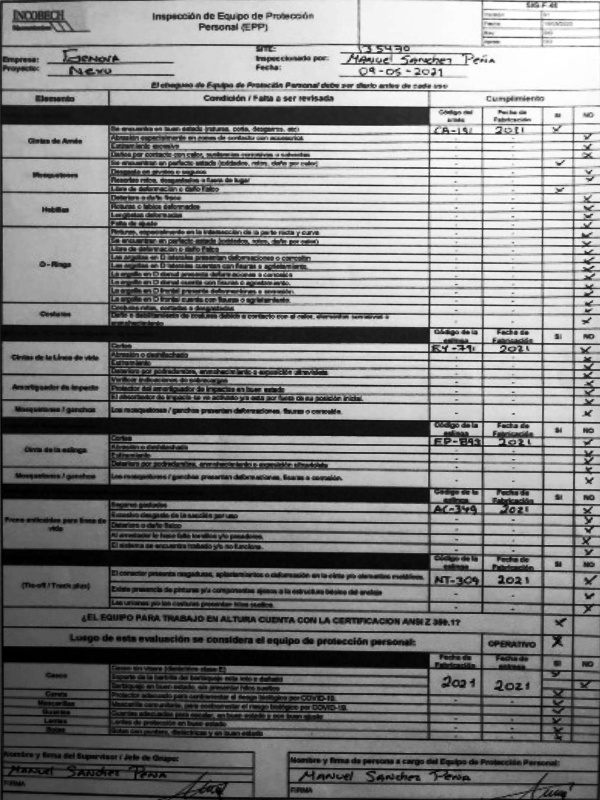 INCOBECH
Inspección de Equipo de Protección
Personal (EPP)
SIG-F-46
Empresa: Genova
SITE: 135470
Proyecto: Nexu
Inspeccionado por: Manuel Sanchez Peña
Fecha: 09-05-2021
El chequeo de Equipo de Protección Personal debe ser diario antes de cada uso
Elemento Condición / Falta a ser revisada Cumplimiento
Código del arnés Fecha de Fabricación SI NO
Cintas de Arnés
Se encuentra en buen estado (roturas, corte, desgarros, etc) CA-191 2021 X
Abrasión especialmente en zonas de contacto con accesorios
Estiramiento excesivo
Daños por contacto con calor, sustancias corrosivas o solventes
Mosquetones
Se encuentran en perfecto estado (soldados, rotos, daño por calor)
Desgaste en pivotes o seguros
Resortes rotos, desgastados o fuera de lugar
Hebillas
Libre de deformación o daño físico
Deterioro o daño físico
Roturas o labios deformados
Lengüetas deformadas
Falta de ajuste
D - Rings
Roturas, especialmente en la intersección de la parte recta y curva
Se encuentran en perfecto estado (soldados, rotos, daño por calor)
Libre de deformación o daño físico
Las argollas en D laterales presentan deformaciones o corrosión
Las argollas en D laterales cuentan con fisuras o agrietamiento.
La argolla en D dorsal presenta deformaciones o corrosión
La argolla en D dorsal cuenta con fisuras o agrietamiento.
La argolla en D frontal presenta deformaciones o corrosión.
La argolla en D frontal cuenta con fisuras o agrietamiento.
Costuras
Costuras rotas, cortadas o desgastadas
Código de la eslinga Fecha de Fabricación SI NO
Cintas de la Línea de vida
Cortes EY-791 2021 X
Abrasión o deshilachado
Estiramiento
Deterioro por podredumbre, enmohecimiento o exposición ultravioleta
Amortiguador de impacto
Verificar indicaciones de sobrecargas
Protector del amortiguador de impactos en buen estado
El absorbedor de impacto se ve activado y/o esta por fuera de su posición inicial.
Mosquetones / ganchos Los mosquetones / ganchos presentan deformaciones, fisuras o corrosión.
Código de la eslinga Fecha de Fabricación SI NO
Cinta de la eslinga
Cortes EP-893 2021 X
Abrasión o deshilachado
Estiramiento
Deterioro por podredumbre, enmohecimiento o exposición ultravioleta
Mosquetones / ganchos Los mosquetones / ganchos presentan deformaciones, fisuras o corrosión.
Código de la eslinga Fecha de Fabricación SI NO
Freno anticaídas para línea de vida
AC-349 2021 X
Excesivo desgaste de la sección por uso
Deterioro o daño físico
Al arrestador le hace falta tornillos y/o pasadores.
El sistema se encuentra trabado y/o no funciona.
Código de la eslinga Fecha de Fabricación SI NO
El conector presenta rasgaduras, aplastamientos o deformación en la cinta y/o elementos metálicos. NT-309 2021 X
Existe presencia de pinturas y/o componentes ajenos a la estructura básica del anclaje
Las uniones y/o las costuras presentan hilos sueltos.
¿EL EQUIPO PARA TRABAJO EN ALTURA CUENTA CON LA CERTIFICACION ANSI Z 359.1? X
Luego de esta evaluación se considera el equipo de protección personal: OPERATIVO X
Fecha de Fabricación Fecha de entrega SI NO
Casco
Casco sin visera (dieléctrico clase E)
Soporte de la barbilla del barbiquejo esta roto o dañado 2021 2021
Barbiquejo en buen estado, sin presentar hilos sueltos
Careta Protector adecuado para contrarrestar el riesgo biológico por COVID-19.
Mascarillas Mascarilla comunitaria, para contrarrestar el riesgo biológico por COVID-19.
Guantes Guantes adecuados para escalar, en buen estado y con buen ajuste
Lentes Lentes de protección en buen estado
Botas Botas con puntera, dieléctricas y en buen estado
Nombre y firma del Supervisor / Jefe de Grupo:
Manuel Sanchez Peña
FIRMA
Nombre y firma de persona a cargo del Equipo de Protección Personal:
Manuel Sanchez Peña
FIRMA